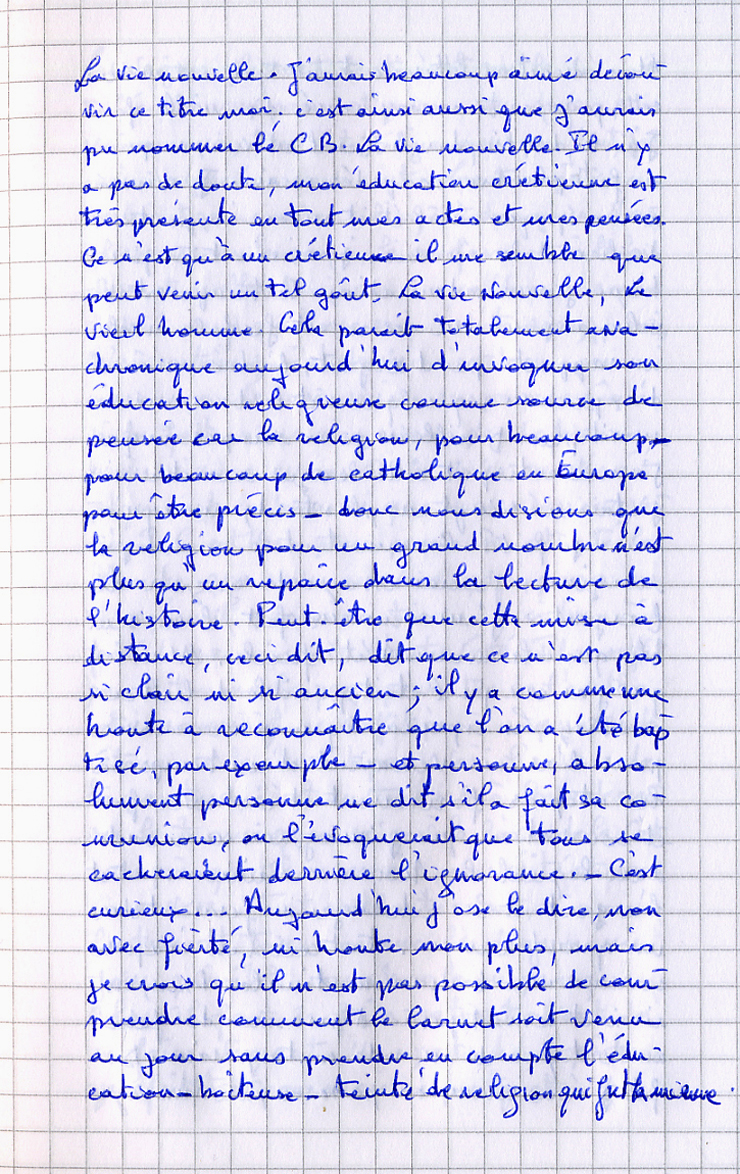 La vie nouvelle. J'aurais beaucoup aimé décou
vrir ce titre moi. c'est ainsi aussi que j'aurais
pu nommer le CB. La vie nouvelle. Il n'y
a pas de doute, mon éducation crétienne est
très présente en tout mes actes et mes pensées.
Ce n'est qu'à un crétienne il me semble que
peut venir un tel goût. La vie Nouvelle, Le
vieil homme. Cela paraît totalement ana-
chronique aujourd'hui d'invoquer son
éducation religieuse comme source de
pensée car la religion, pour beaucoup -
pour beaucoup de catholique en Europe
pour être précis - donc nous disions que
la religion pour un grand nombre n'est
plus qu'un repaire dans la lecture de
l'histoire. Peut-être que cette mise à
distance, ceci dit, dit que ce n'est pas
si clair ni si ancien ; il y a comme une
honte à reconnaître que l'on a été bap
tisé, par exemple - et personne, abso-
lument personne ne dit s'il a fait sa co-
mmunion, on l'évoquerait que tous se
cacheraient derrière l'ignorance. - C'est
curieux... Aujourd'hui j'ose le dire, non
avec fierté, ni honte non plus, mais
je crois qu'il n'est pas possible de com
prendre comment le carnet soit venu
au jour sans prendre en compte l'édu-
cation - boiteuse - teinté de religion qui fut la mienne.